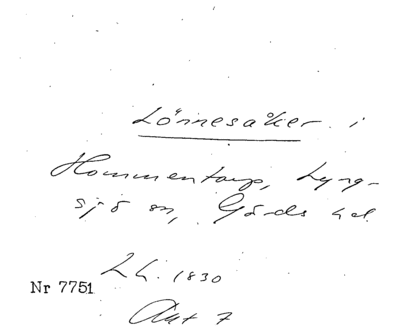 Lönnesåker i
Hommentorp, Lyng-
sjö sn, Gärds hd
L L. 1830
Nr 7751
Akt 7